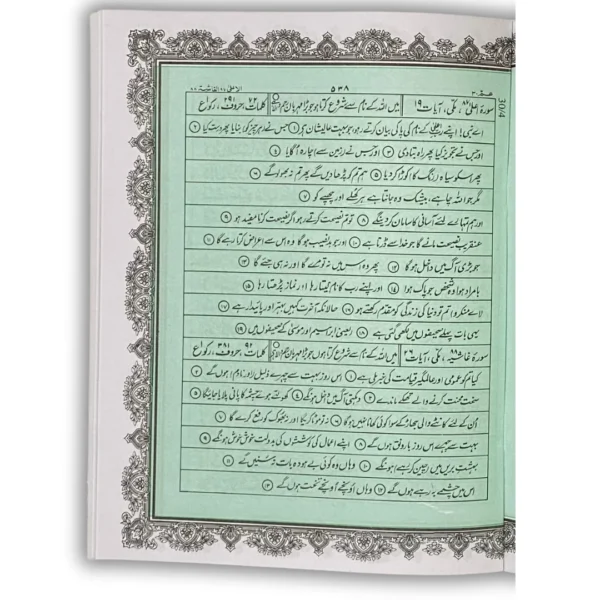 عمّ ۳۰ ۵۳۸ الاعلیٰ ۸۷ الغاشیۃ ۸۸
سورۃ اعلیٰ ۸۷، مکی، آیات ۱۹ میں اللہ کے نام سے شروع کرتا ہوں جو بڑا مہربان کلمات ۷۲، حروف ۲۹۱، رکوع ۱
اے نبی! اپنے رب اعلیٰ کے نام کی پاکی بیان کرتے رہو جو بہت عالیشان ہے ۱ جس نے ہر چیز کو بنایا پھر درست کیا ۲
اور جس نے تجویز کیا پھر راہ بتادی ۳ اور جس نے زمین سے چارہ اگایا ۴
پھر اسکو سیاہ رنگ کا کوڑا کر دیا ۵ ہم تم کو پڑھا دیں گے پھر تم نہ بھولو گے ۶
مگر جو اللہ چاہے، بیشک وہ جانتا ہے ہر کھلے اور چھپے کو ۷
اور ہم تمہارے لئے آسانی کا سامان کر دینگے ۸ تو تم نصیحت کرتے رہو اگر نصیحت کرنا مفید ہو ۹
عنقریب نصیحت مانے گا جو خدا سے ڈرتا ہے ۱۰ اور جو بدنصیب ہوگا وہ اس سے اعراض کرتا رہے گا ۱۱
جو بڑی آگ میں داخل ہوگا ۱۲ پھر وہ اس میں نہ تو مرے گا اور نہ ہی جئے گا ۱۳
بامراد ہوا وہ شخص جو پاک ہوا ۱۴ اور اپنے رب کا نام لیتا رہا اور نماز پڑھتا رہا ۱۵
لاے منکرو! تم تو دنیا کی زندگی کو مقدم رکھتے ہو ۱۶ حالانکہ آخرت کہیں بہتر اور پائیدار ہے ۱۷
یہی بات پہلے صحیفوں میں لکھی گئی ہے ۱۸ (یعنی) ابراہیم اور موسیٰ کے صحیفوں میں ۱۹
سورۃ غاشیہ ۸۸، مکی، آیات ۲۶ میں اللہ کے نام سے شروع کرتا ہوں جو بڑا مہربان کلمات ۹۲، حروف ۳۸۱، رکوع ۱
کیا تم کو عمومی اور عالمگیر قیامت کی خبر ملی ہے ۱ اس روز بہت سے چہرے ذلیل (اور نادم) ہوں گے ۲
سخت محنت کرنے والے تھکے ماندے ۳ دہکتی آگ میں داخل ہونگے ۴ کھولتے ہوئے چشمہ کا پانی پلایا جائیگا ۵
اُن کے لئے کانٹے والی جھاڑ کے سوا کوئی کھانا نہیں ہوگا ۶ نہ تو موٹا کریگا اور نہ بھوک کو رفع کرے گا ۷
بہت سے چہرے اس روز بارونق ہوں گے ۸ اپنے اعمال کی کوششوں کی بدولت خوش خوش ہونگے ۹
بہشتِ بریں میں ہونگے ۱۰ وہاں وہ کوئی بے ہودہ بات نہ سنیں گے ۱۱
اس میں چشمے بہہ رہے ہوں گے ۱۲ وہاں اونچے اونچے تخت ہوں گے ۱۳
30/4